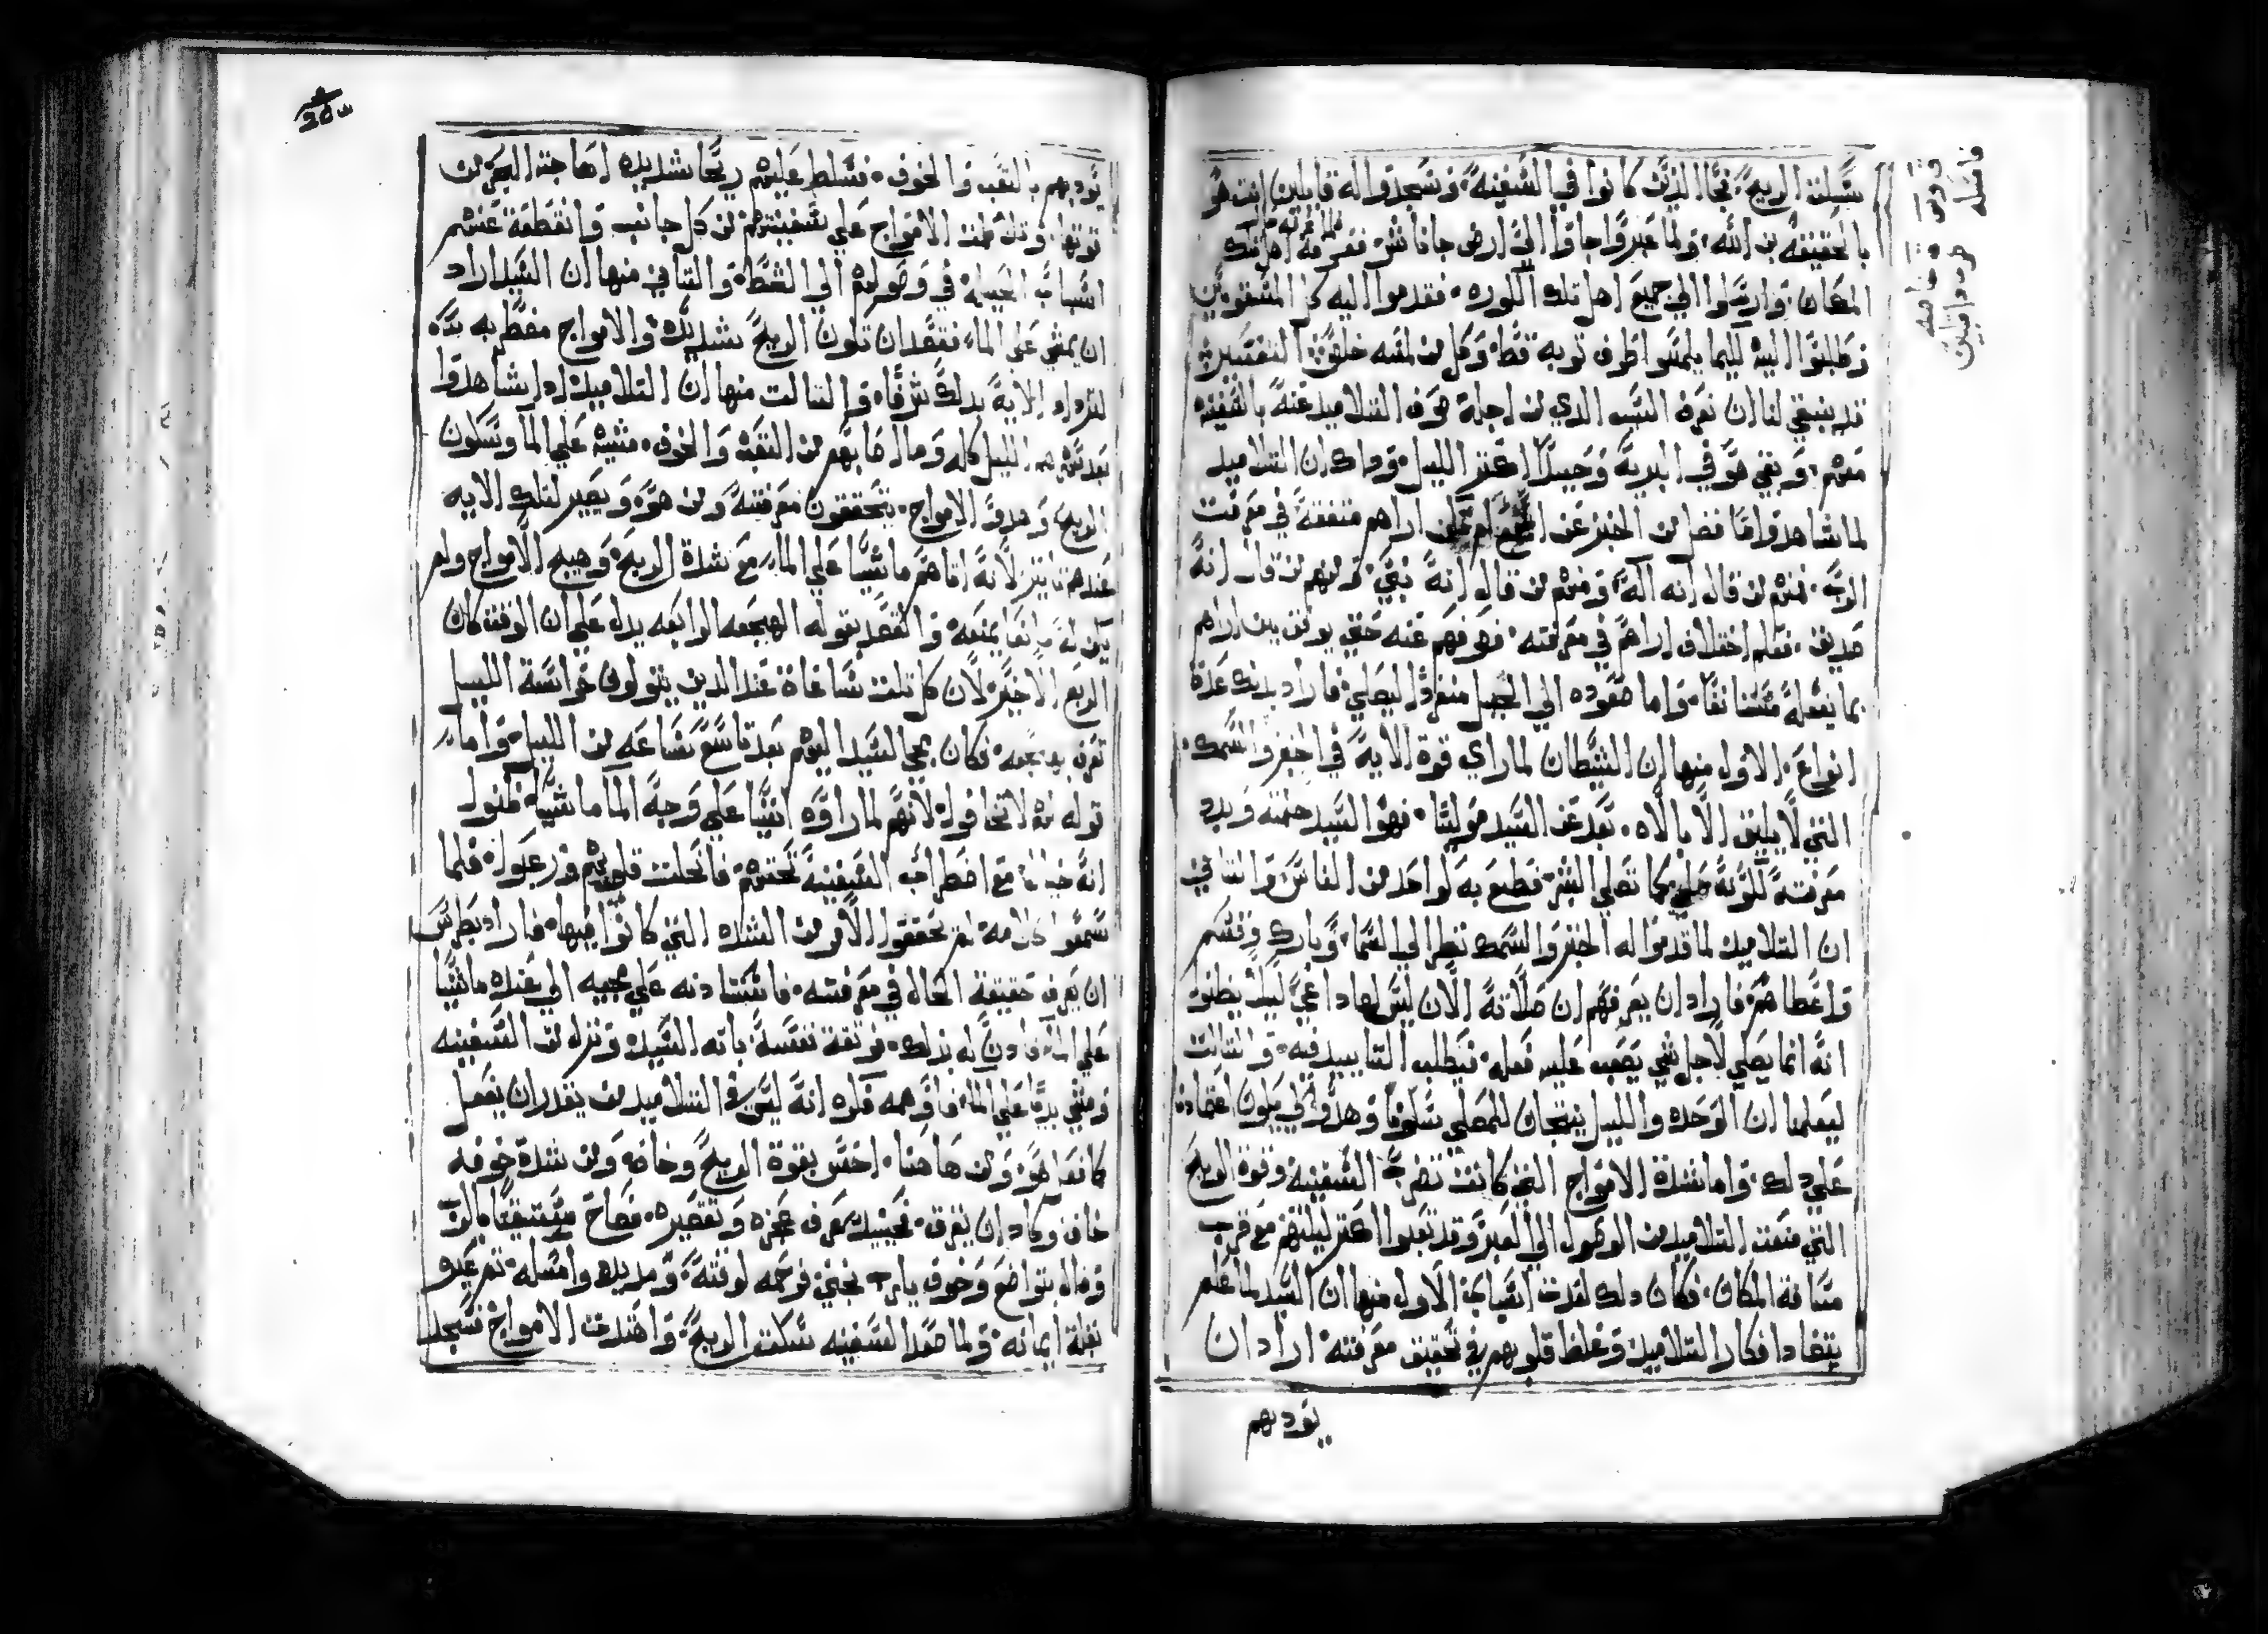 سكنت الريح نجا الذين كانوا في السفينة وسجدوا له قايلين انت هو
بالحقيقة بن الله ولما عبروا جاوا الي ارض جاناشر فعرفه اهل تلك
المكان وارسلوا الي جميع اهل تلك الكوره فقدموا اليه كل المسقومين
وطلبوا اليه ليما يلمسوا طرف ثوبه فقط وكل من لمسه خلص التفسير
قد ينبغي لنا ان نعرف السبب الدي من اجله صرف التلاميد عنه بالسفينة
معهم وبقي هو في البرية وحيدا اكتر الليل وداك ان التلاميد
لما شاهدوا ما فضل من الخبز عن الجمع اراهم متفقة في معرفت
الرب فمنهم من قال انه اله ومنهم من قال انه نبي ومنهم من قال انه
صديق فعلم اختلاف اراهم في معرفته فصرفهم عنه حتي يوفق بين اراهم
بما يفعله مستانفا واما صعوده الي الجبل منفردا ليصلي فاراد بدلك عدة
انواع الاول منها ان الشيطان لما راي قوة الاية في الخبز والسمك
التي لا يليق الا بالاله بعد عن السيد موليا فهو السيد حكمته وبدد
معرفته لكونه صلي كما تصلي البشر فطمع به لواحد من الناس والتاني
ان التلاميد لما قدموا له الخبز والسمك نظر الي السما وبارك وقسم
واعطاهم فاراد ان يعرفهم ان صلاته الان ليس لها داعي ليلا يظنوا
انه انما يصلي لاجل شي يصعب عليه فعله فيطلب التاييد فيه والتالت
ليعلمنا ان الوحده والليل ينتجان للمصلي سكونا وهدوا لكي يكون اعتمادنا
علي دلك واما شدة الامواج التي كانت تضرب السفينة وقوة الريح
التي منعت التلاميد من الوصول الي العبر وقد تعبوا اكتر ليلتهم مع قرب
مسافة المكان فكان دلك لعدت اسباب الاول منها ان السيد لما علم
بتضاد افكار التلاميد وغلظ قلوبهم في تحقيق معرفته اراد ان
يودبهم
يودبهم بالتعب والخوف فسلط عليهم ريحا شديده اهاجت البحر من
قوتها وتلاطمت الامواج علي سفينتهم من كل جانب وانقطعة عنهم
اسباب الحيلة في وصولهم الي الشط والتاني منها ان السيد اراد
ان يمشي علي الماء فقصد ان تكون الريح شديدة والامواج مضطربه بده
لتزداد الاية بدلك شرفا والتالت منها ان التلاميد ادا شاهدوا
بعد سهرهم الليل كله وما اصابهم من التعب والخوف مشيه علي الما وسكون
الريح وهدو الامواج يتحققون معرفته ومن هو ويصير لتلك الايه
عندهم تاتير لانه اتاهم ماشيا علي الماء مع شدة الريح وهيج الامواج ولم
يكن له مانعا يمنعه والقصد بقوله الهجعه الرابعه يدل علي ان الوقت كان
الربع الاخير لان كل تلت ساعاة عند الدين يتولون حراسة الليل
تعرف بهجعه فكان مجي السيد اليهم بعد تاسع ساعه من الليل واما
قوله لهم لا تخافوا لانهم لما راوه اتيا علي وجه الما ماشيا ظنوا
انه خيالا مع اضطراب السفينة تحتهم فانحلت قلوبهم ورعبوا فلما
سمعوا كلامه لم يحققوا الامر من الشدة التي كانوا فيها فاراد بطرس
ان يعرف حقيقة الحال في معرفته فاستادنه علي مجيه الي عنده ماشيا
علي الماء فادن له بدلك فوتقة نفسه بانه السيد ونزل من السفينه
ومشي بديا علي الماء فاوهمه فكره انه ليس في التلاميد من يقدر ان يفعل
كما فعل هو ومن هاهنا احس بقوة الريح وخاف ومن شدة خوفه
خاف وكاد ان يغرق فحينيد عرف عجزه وتقصيره فصاح مستغيتا بالرب
وقال بتواضع وخوف يارب نجني فرحمه لوقته ومد يده وامسكه تم عيره
بقلة ايمانه ولما صعدا السفينه سكنت الريح واهتدت الامواج فسجد